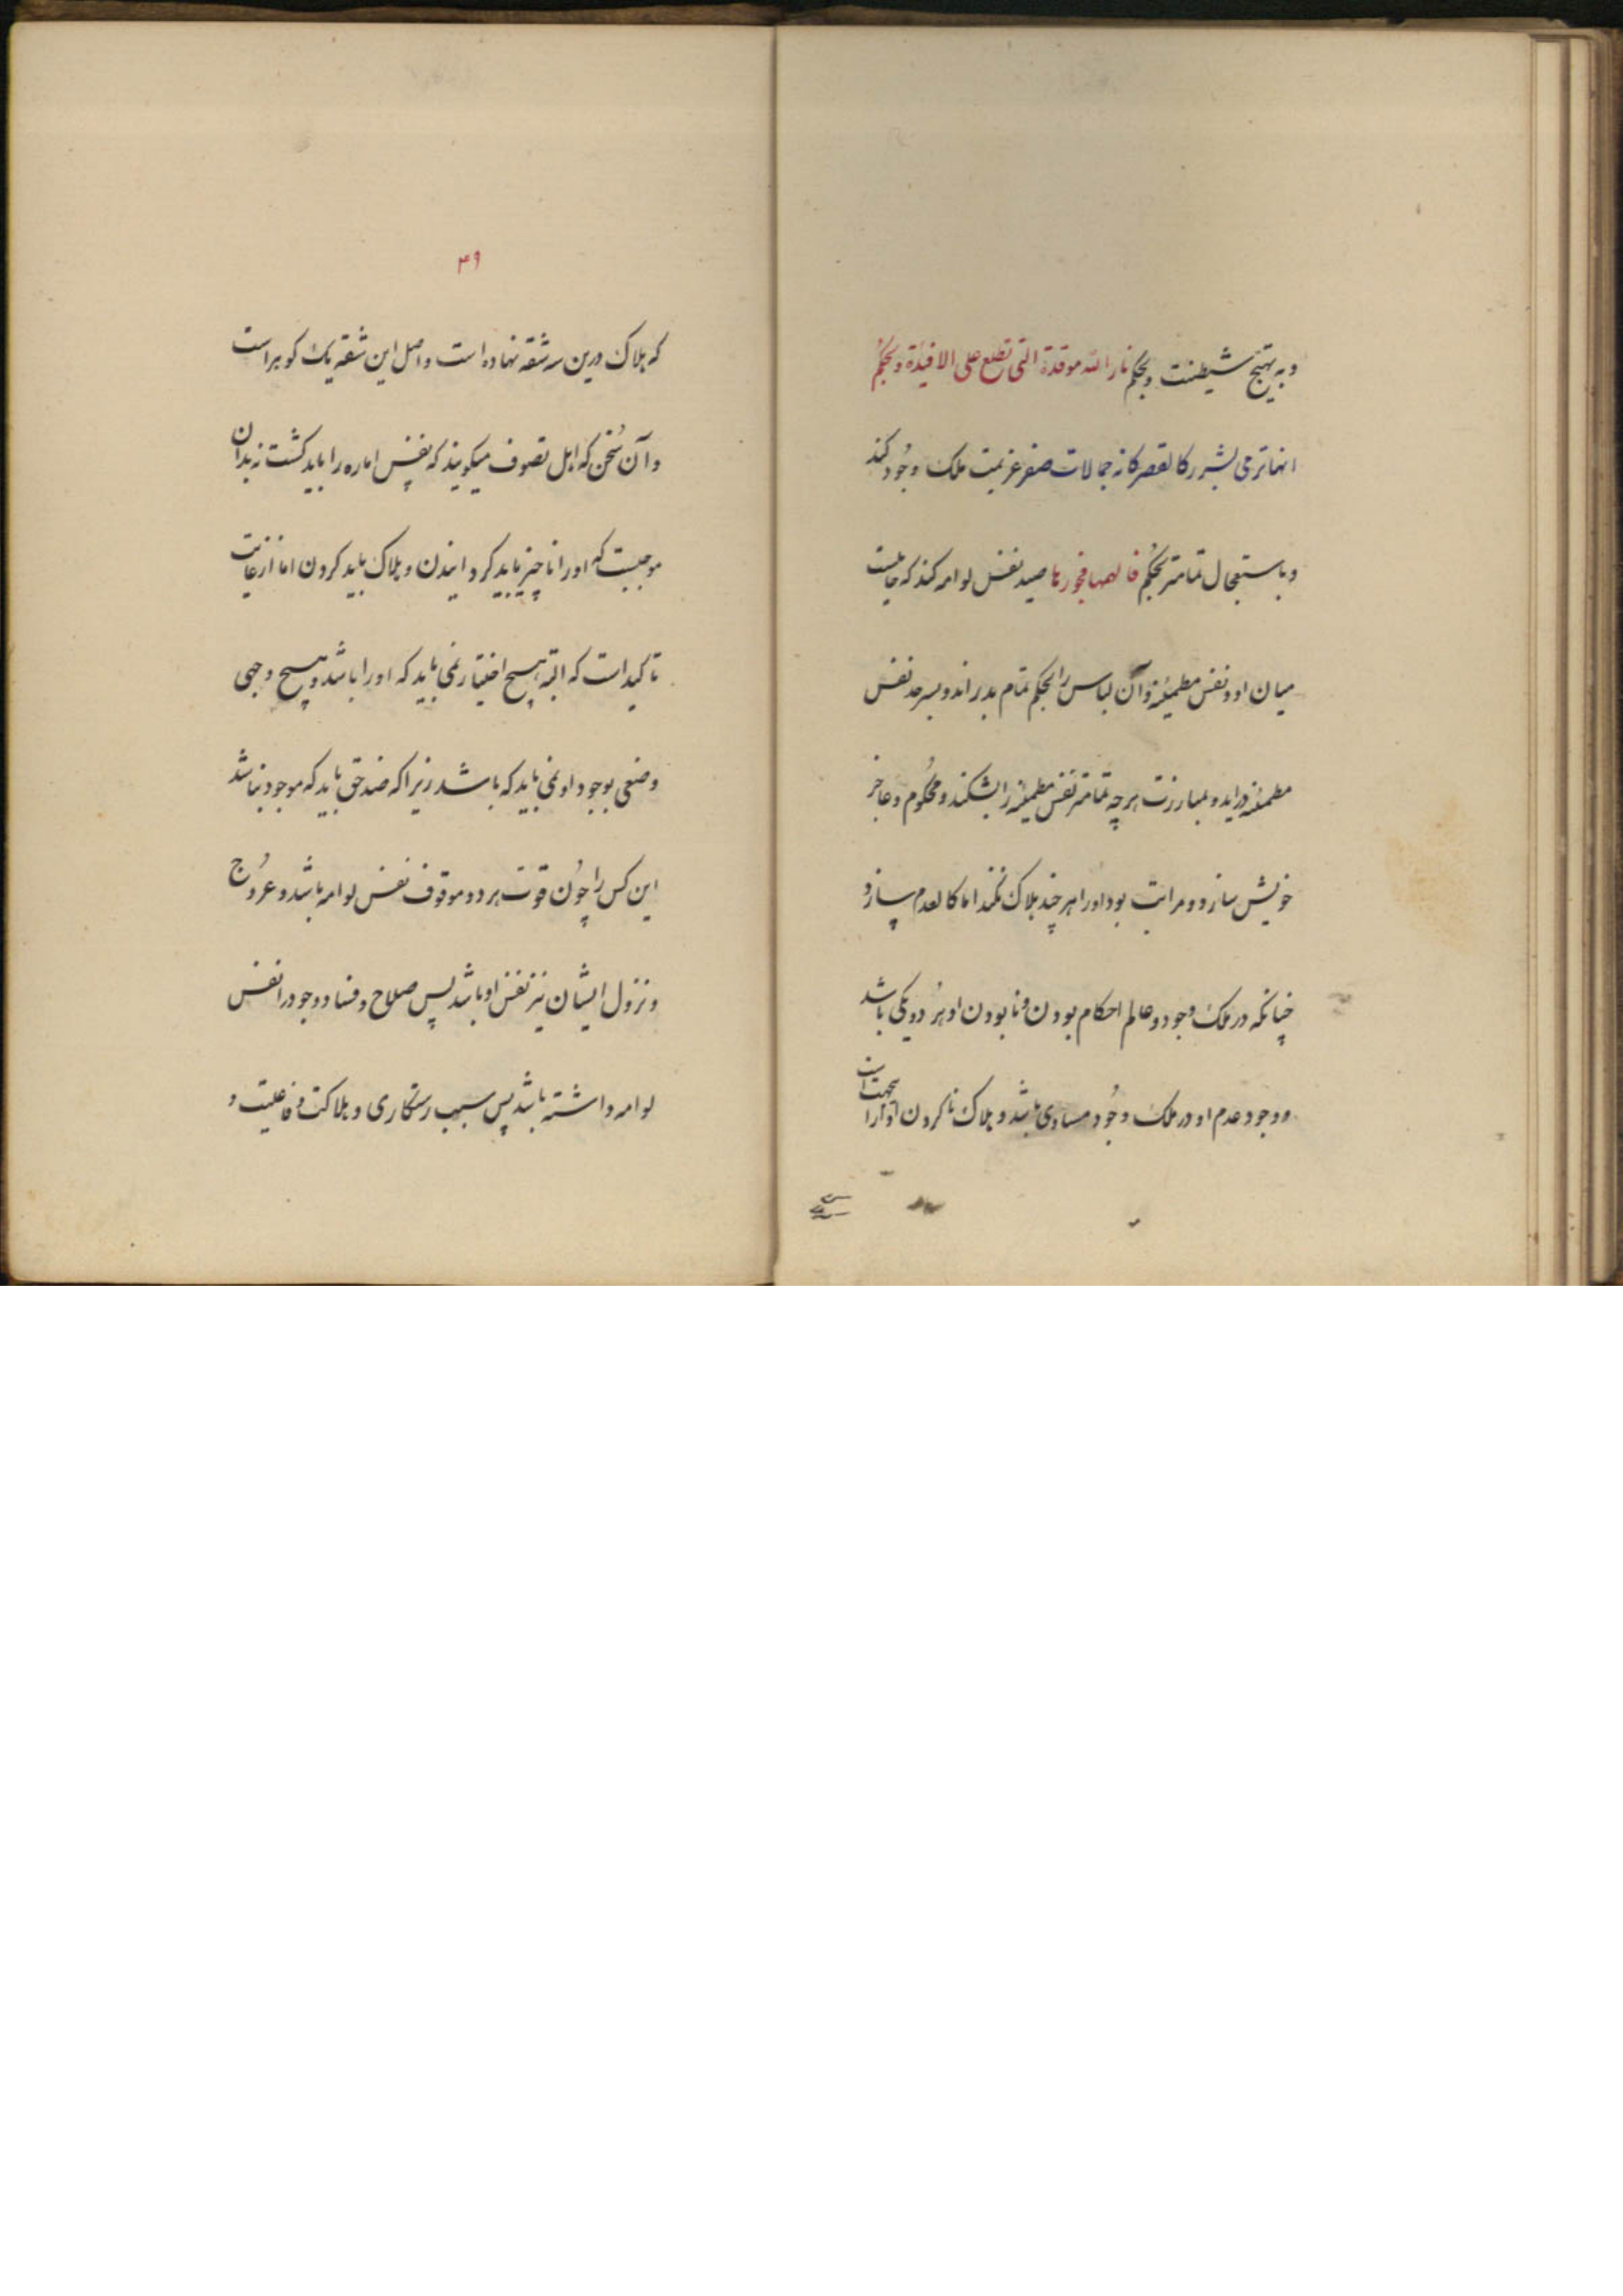 وبه تهیج شیطنت وبحکم نار الله موقدة التی تطلع علی الافئدة وبحکم
انها ترمی بشررکالقصر کانه جمالات صفر عزیمت ملک وجود کند
وباستعجال تمامتر بحکم فالهمها فجورها صید نفس لوامه کند که
میان او ونفس مطمئنه وآن لباس را بحکم تمام بدراند وبسرحد نفس
مطمئنه دراید وبمبارزت هرچه تمامتر نفس مطمئنه را بشکند ومحکوم وعاجز
خویش سازد ومراتب بود اورا هرچند هلاک نکند اما کالعدم سازد
چنانکه درملک وجود وعالم احکام بودن ونابودن او هر دو یکی باشد
ووجود عدم او درملک وجود مساوی باشد وهلاک ناکردن اورا بجهت آنست
۴۹
که هلاک درین سه شقه نهاده است واصل این شقه یک کوهراست
وآن سخن که اهل تصوف میکویند که نفس اماره را باید کشت نه بدان
موجبست که اورا ناچیز باید کردانیدن وهلاک باید کردن اما ازغایت
تاکیداست که البته هیچ اختیار نمی باید که اورا باشد وهیچ وجهی
وضعی بوجود او نمی باید که باشد زیراکه ضد حق باید که موجود نباشد
این کس را چون قوت هردو موقوف نفس لوامه باشد وعروج
ونزول ایشان نیز نفس او باشد پس صلاح وفساد وجود را نفس
لوامه داشته باشد پس سبب رستکاری وهلاکت وفاعلیت و